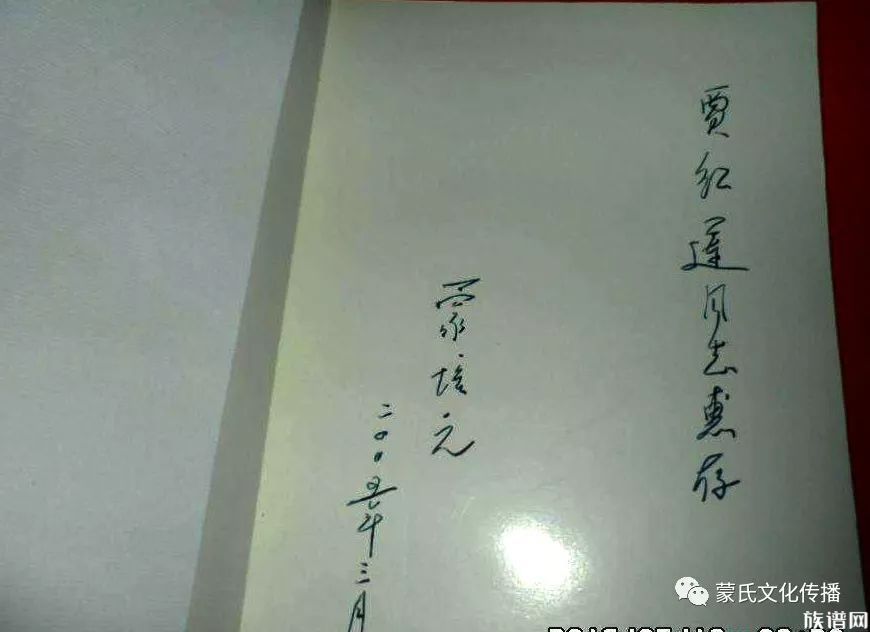 贾红莲同志惠存
蒙培元
二００五年三月
蒙氏文化传播
族谱网